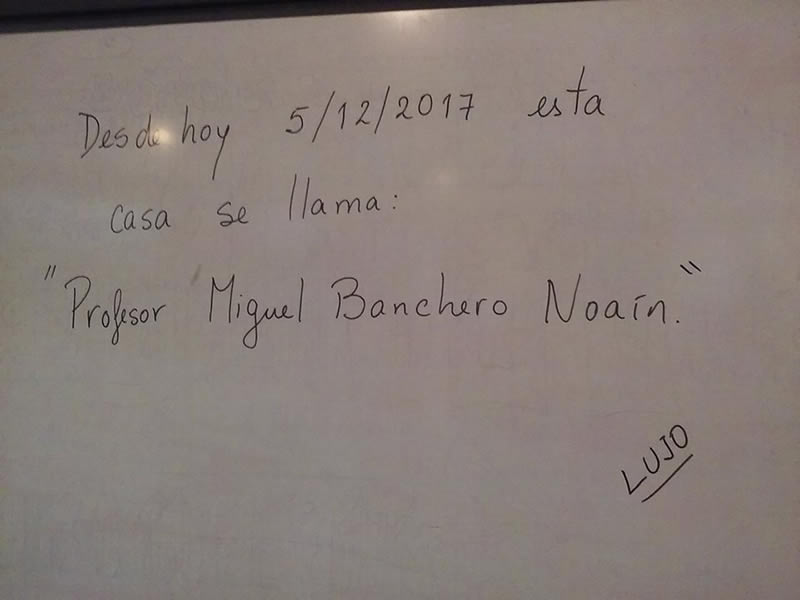 Desde hoy 5/12/2017 esta
casa se llama:
"Profesor Miguel Banchero Noaín."
LUJO